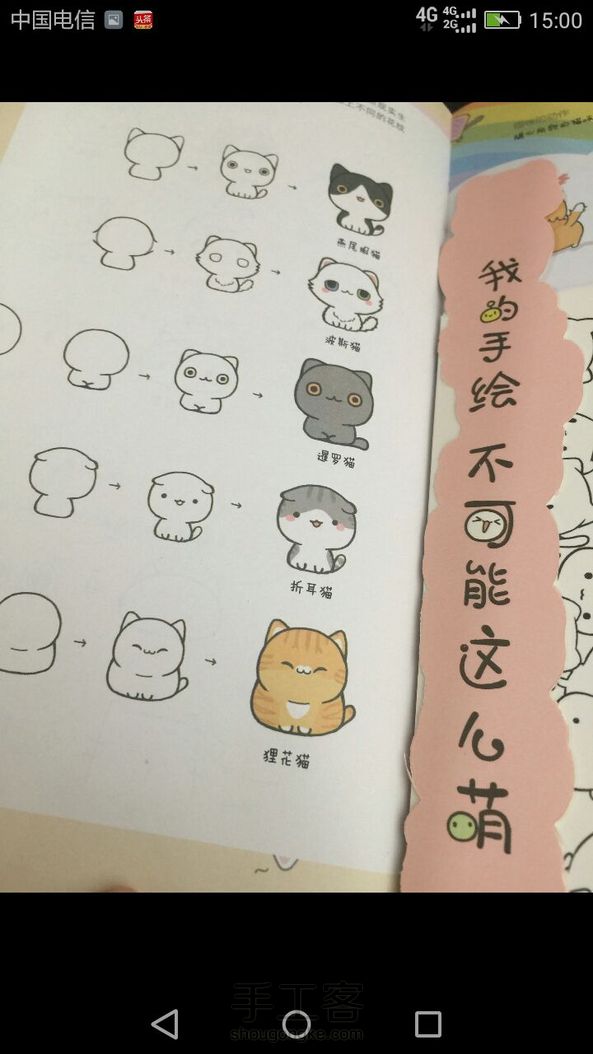 中国电信 头条 4G 4G 2G 15:00
上不同的花纹
燕尾服猫
波斯猫
暹罗猫
折耳猫
狸花猫
我的手绘 不可能这么萌
手工客
shougongke.com